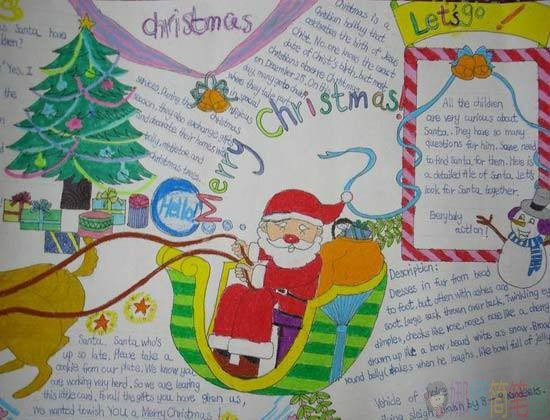 christmas
Let's go!
Merry Christmas!
Hello!
Santa have
"Yes, I
Christmas is a
Christian holiday that
celebrates the birth of Jesus
Christ. No one knows the exact
date of Christ's birth, but most
Christians observe Christmas
on December 25. On this
day, many people
where they take part
in special
religious
services. During the
Christmas
season, they also exchange gifts
and decorate their homes with
holly, mistletoe and
christmas trees.
All the children
are very curious about
Santa. They have so many
questions for him. Some need
to find santa for them. Here is
a detailed file of Santa. Let's
look for Santa together.
Everybody
action!
Description:
Dresses in fur from head
to foot, but often with ashes and
soot, large sack thrown over back. Twinkling eyes
dimples, cheeks like rose, noses nose like a cherry
drawn up like a bow, beard white as snow. Broad
round belly shakes when he laughs, like bowl full of jelly
Vehide of choice
sleigh drawn by 8-9 reindeers.
Santa, Santa who's
up so late, Please take a
cookie from our plate. We know you
are working very hard, So we are leaving
this little card, For all the gifts you have given us,
We wanted to wish YOU a Merry Christmas!